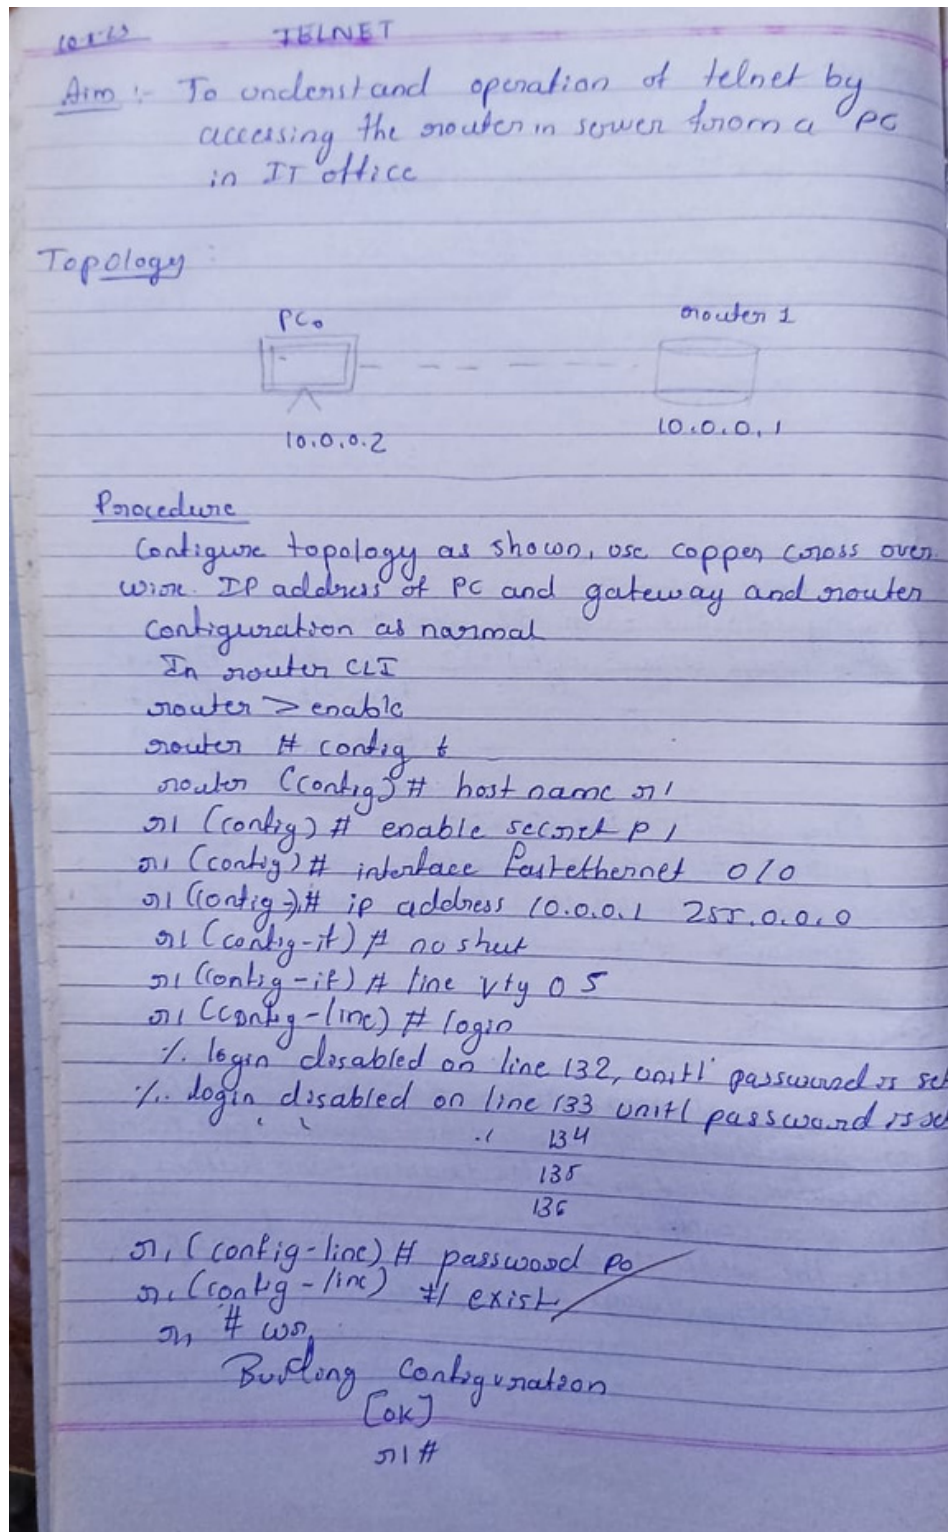 TELNET
Aim :- To understand operation of telnet by
accessing the router in server from a PC
in IT office
Topology :
PC0 router 1
10.0.0.2 10.0.0.1
Procedure
Configure topology as shown, use copper cross over
wire. IP address of PC and gateway and router
configuration as normal
In router CLI
router > enable
router # config t
router (config) # host name r1
r1 (config) # enable secret p1
r1 (config) # interface fastethernet 0/0
r1 (config-) # ip address 10.0.0.1 255.0.0.0
r1 (config-if) # no shut
r1 (config-if) # line vty 0 5
r1 (config-line) # login
%. login disabled on line 132, until password is set
%. login disabled on line 133 until password is se
134
135
136
r1 (config-line) # password p0
r1 (config-line) # exist
r1 # wr
Building Configuration
[OK]
r1 #